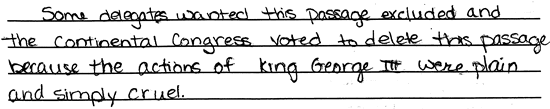 Some delegates wanted this passage excluded and
the Continental Congress voted to delete this passage
because the actions of King George III were plain
and simply cruel.